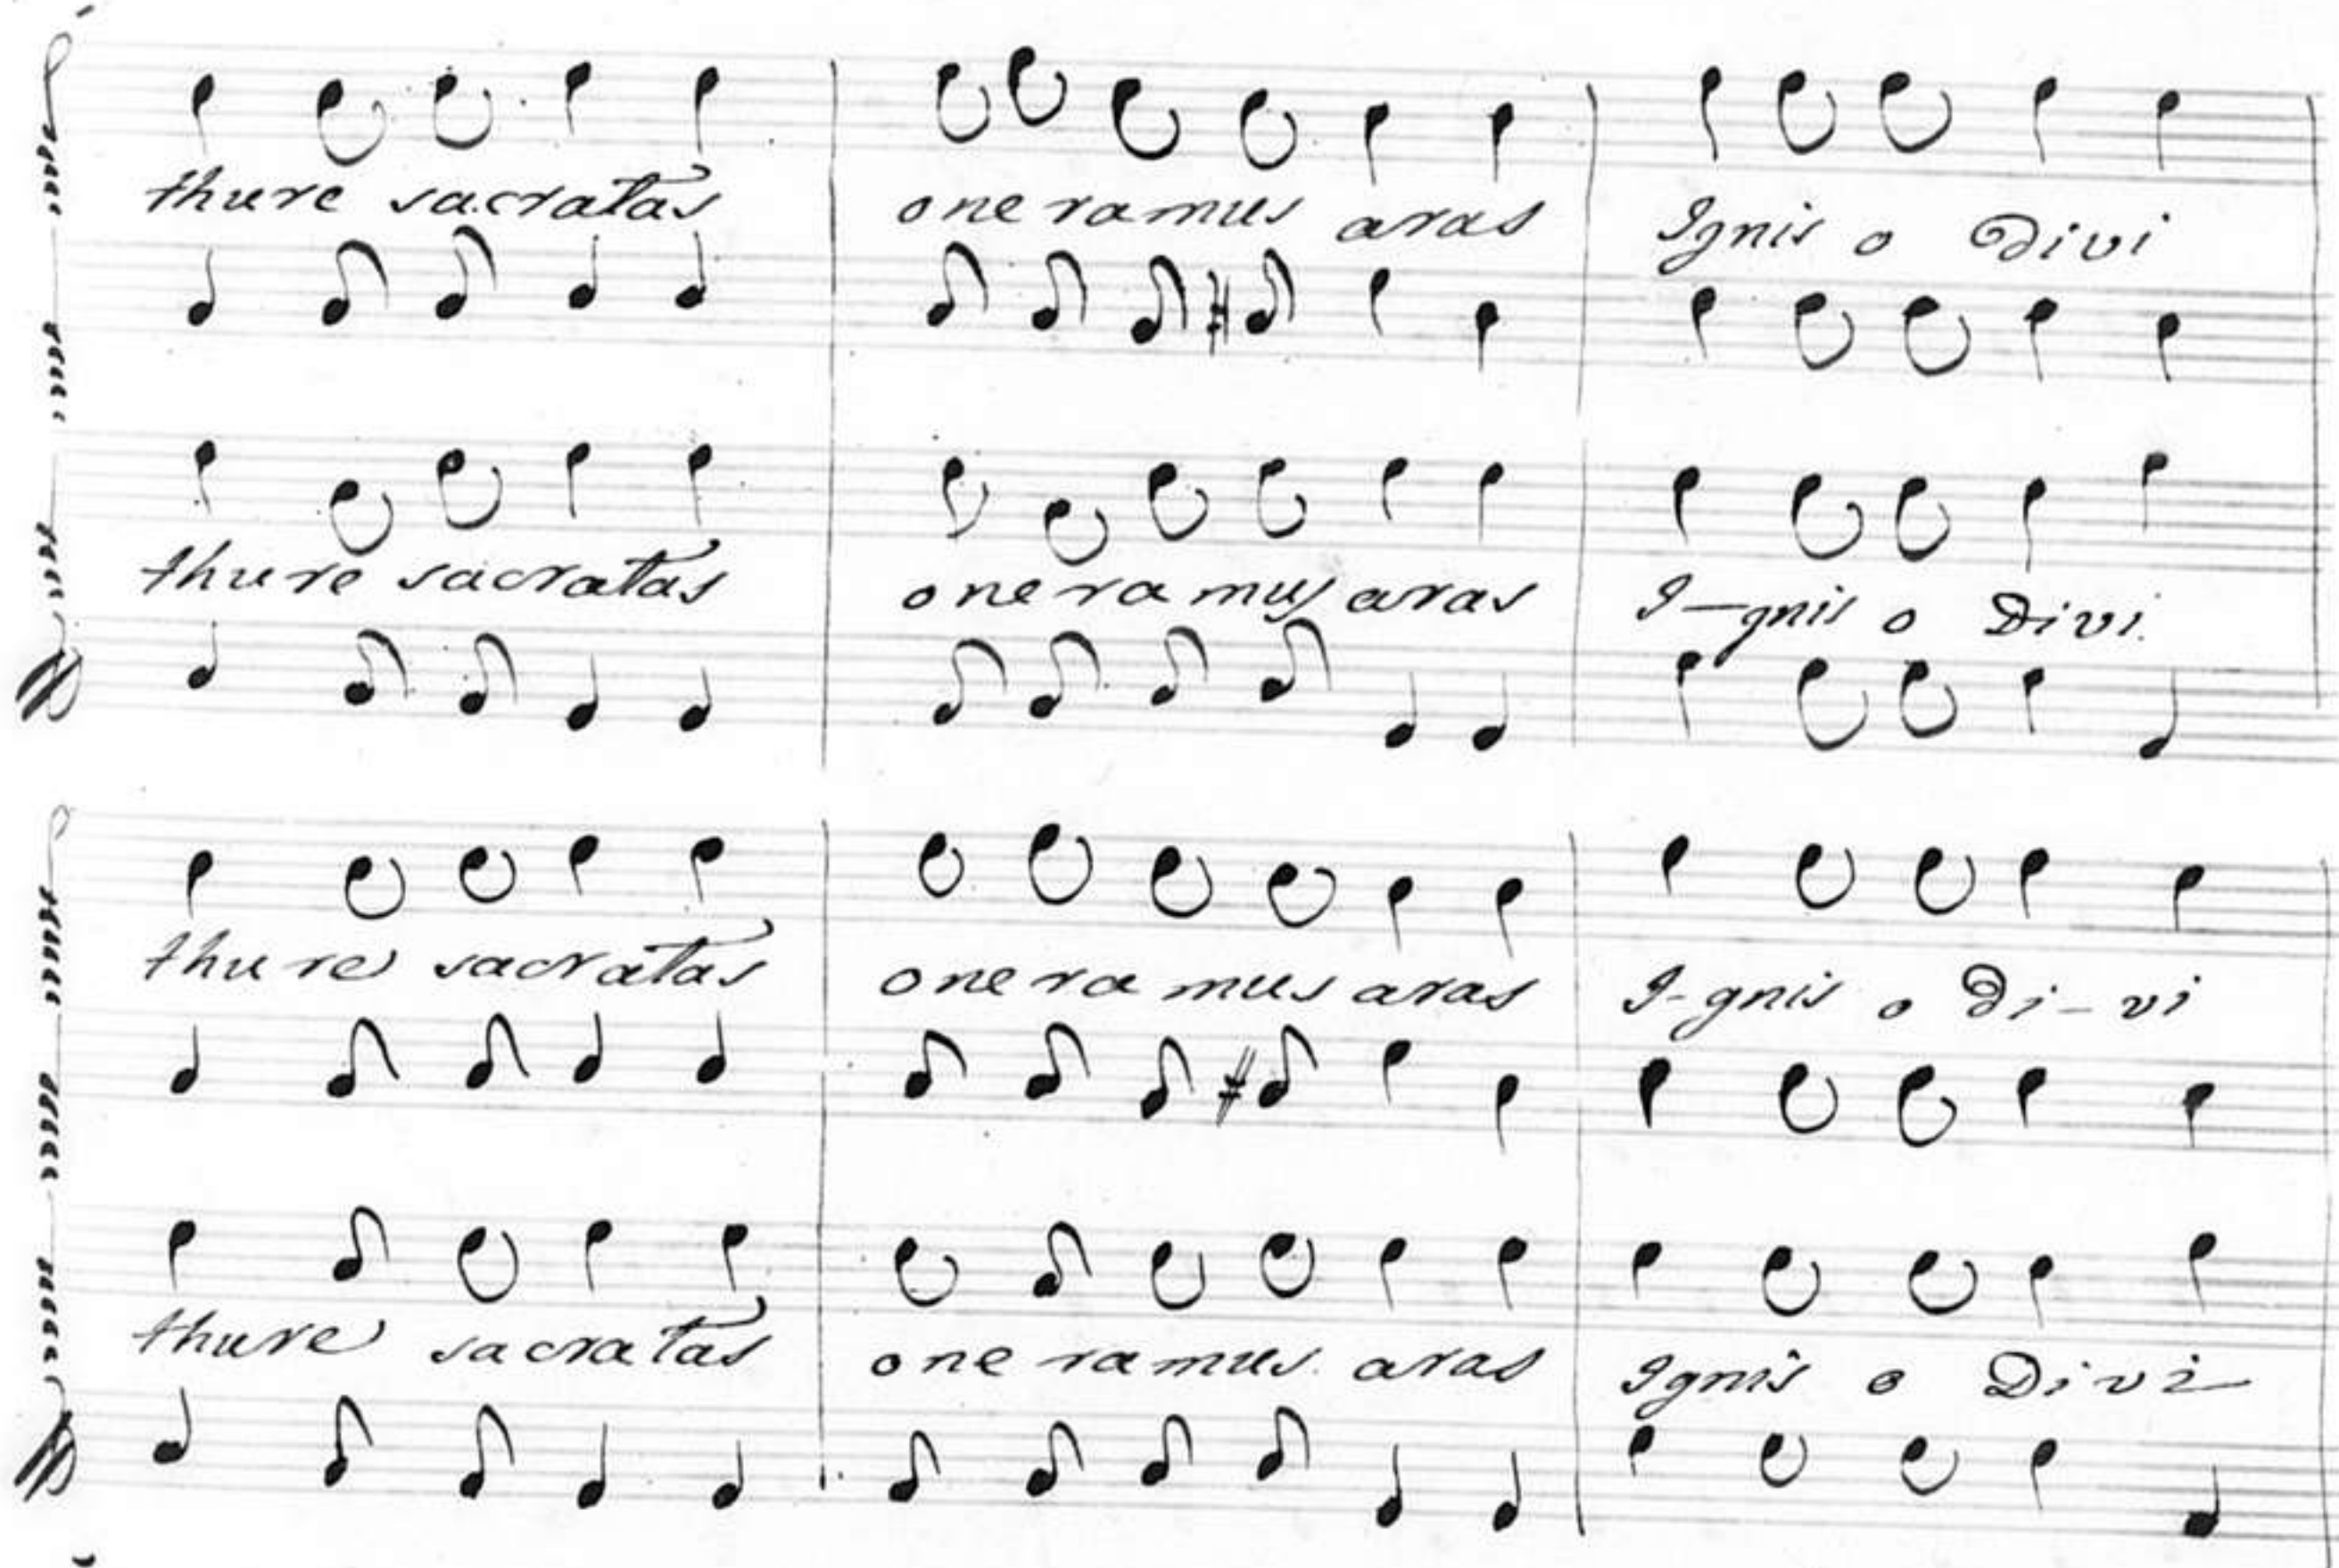 thure sacratas oneramus aras Ignis o Divi
thure sacratas oneramus aras I-gnis o Divi
thure sacratas oneramus aras I-gnis o Di-vi
thure sacratas oneramus aras Ignis o Divi-